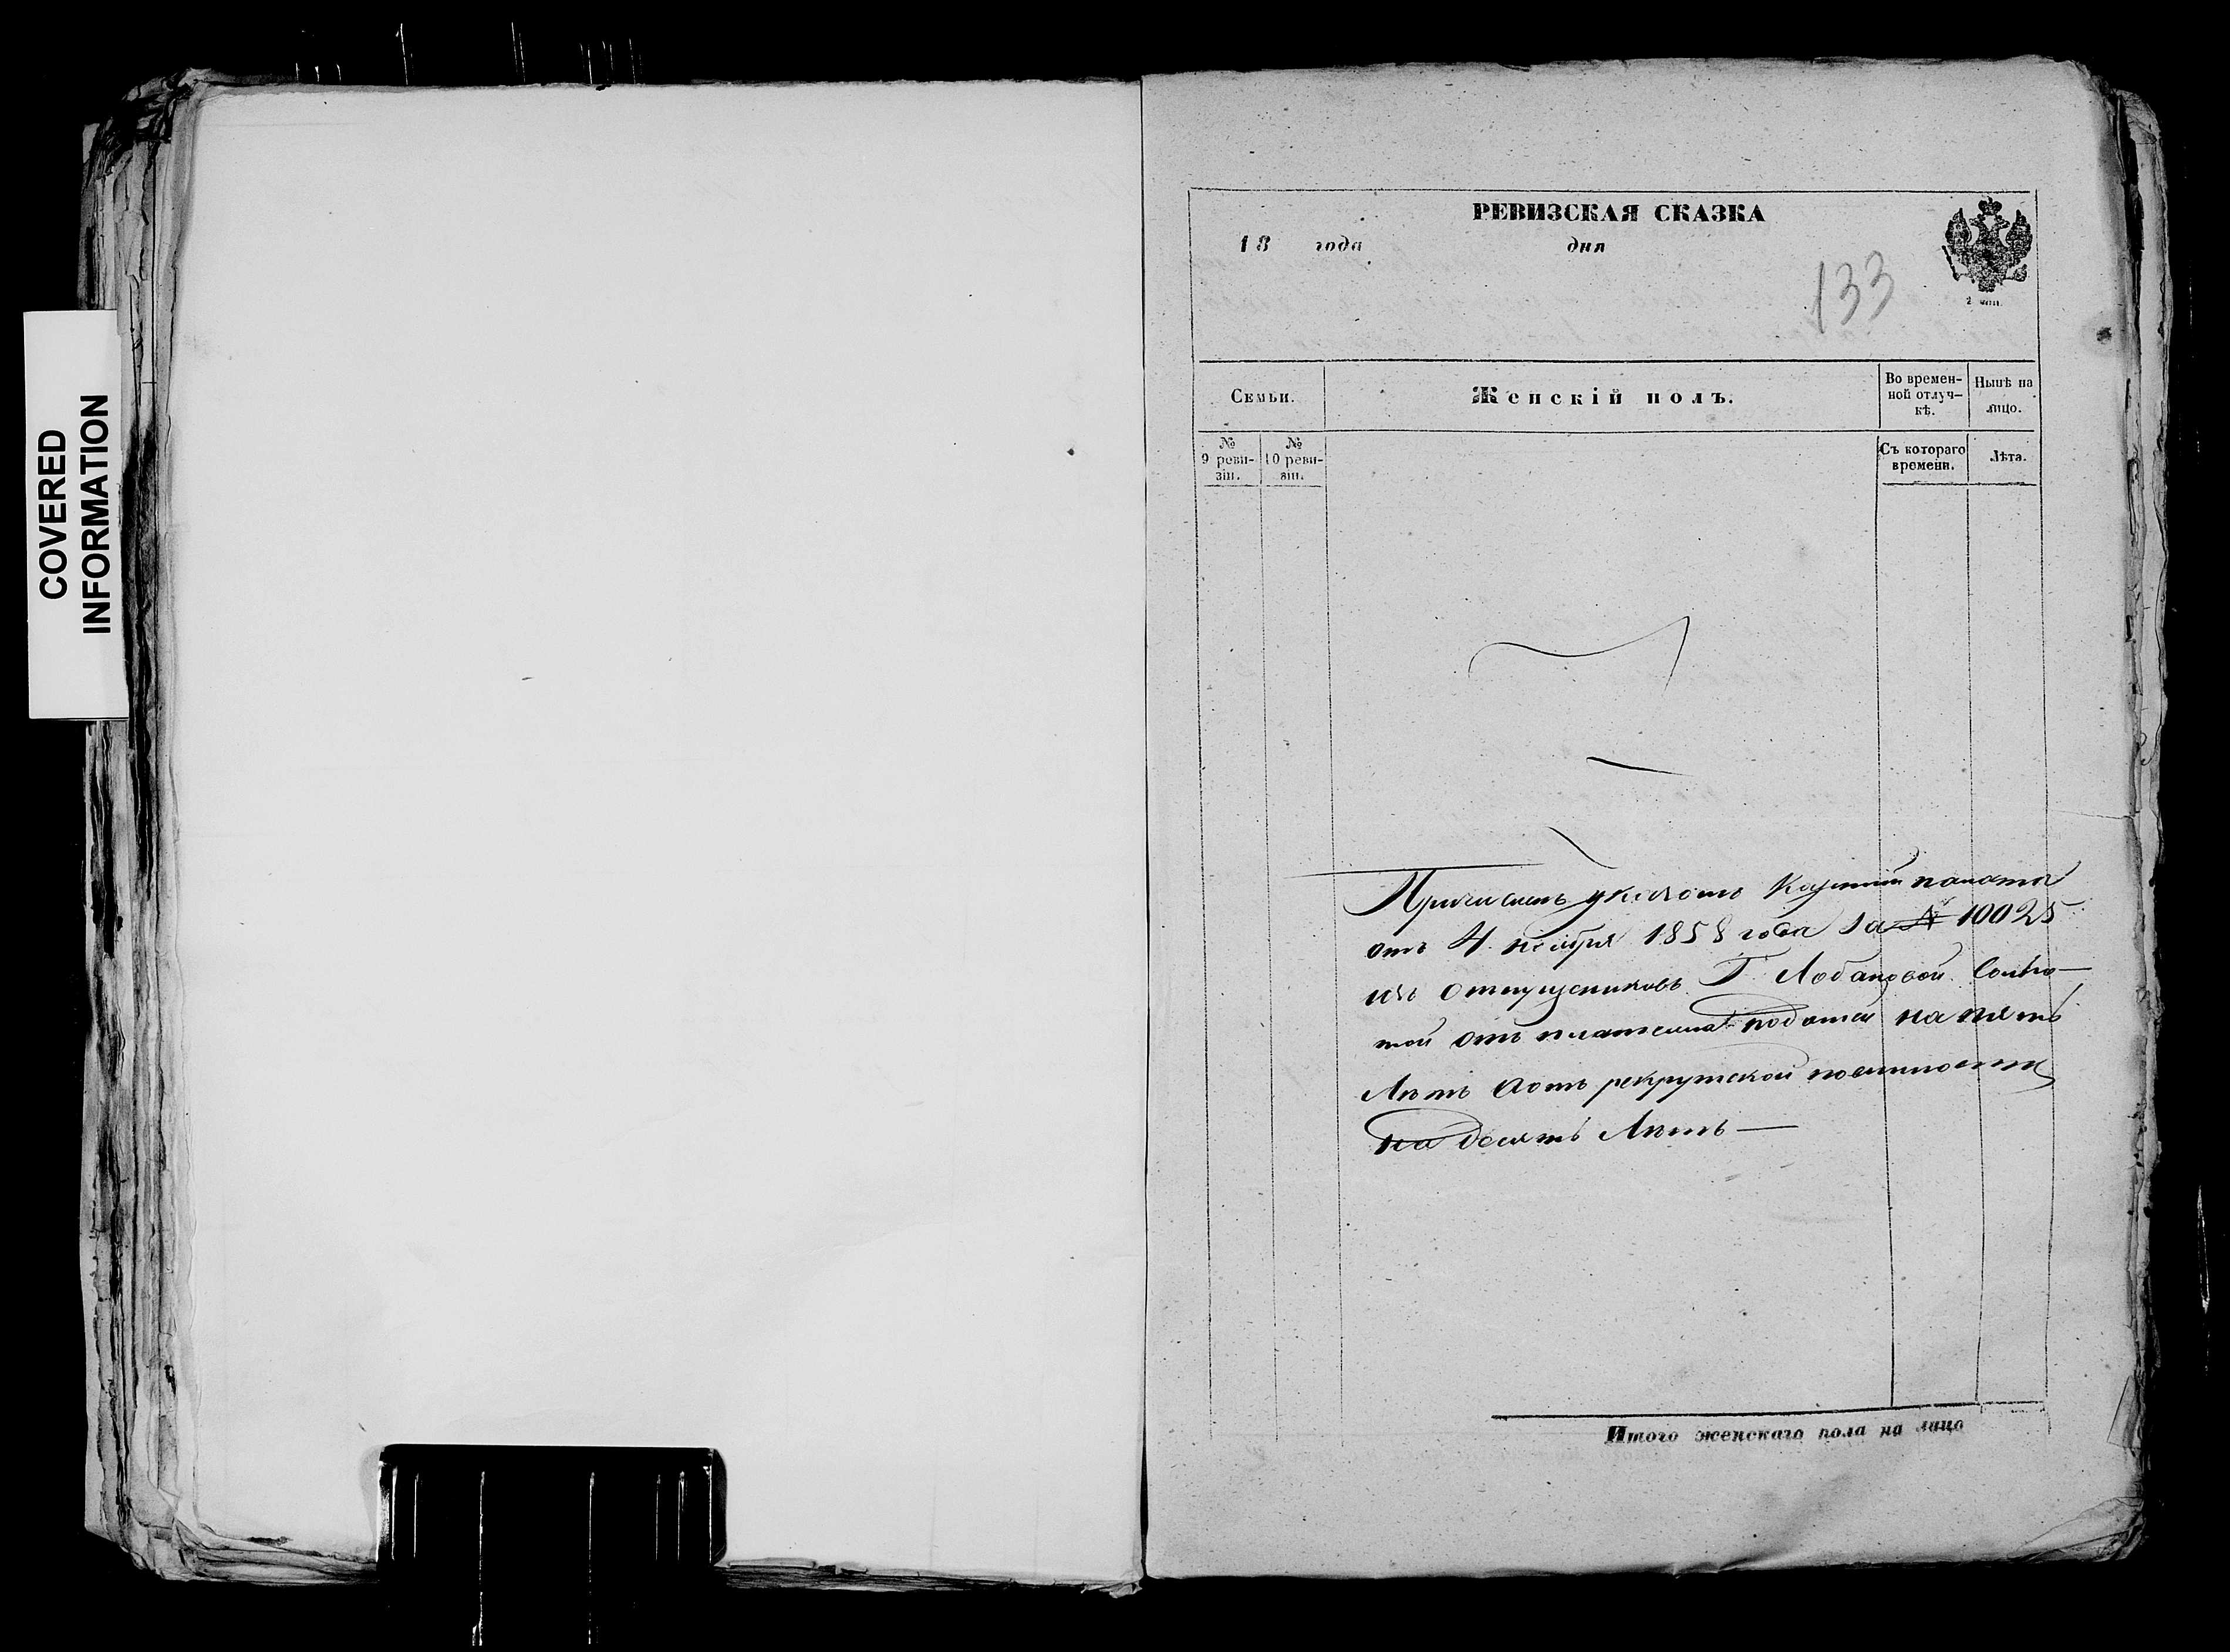 COVERED
INFORMATION
РЕВИЗСКАЯ СКАЗКА
18 года дня
133
2 коп.
Семьи.
Женскій полъ.
Во времен-
ной отлуч-
кѣ.
Нынѣ на
лицо.
№
9 реви-
зіи.
№
10 реви-
зіи.
Съ котораго
времени.
Лѣта.
Причисленъ указомъ Казенной палаты
отъ 4 ноября 1858 года за № 10025
изъ отпущениковъ Г. Лобановой
отъ платежа податей на пять
Лѣтъ а отъ рекрутской повинности
на десять Лѣтъ —
Итого женскаго пола на лицо